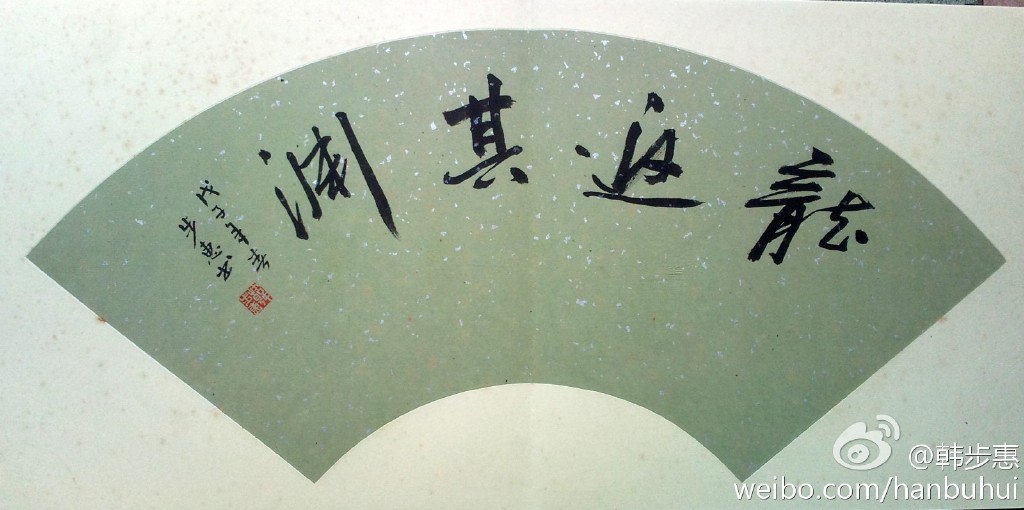 龍返其渊
戊子年春
步惠书
@韩步惠
weibo.com/hanbuhui